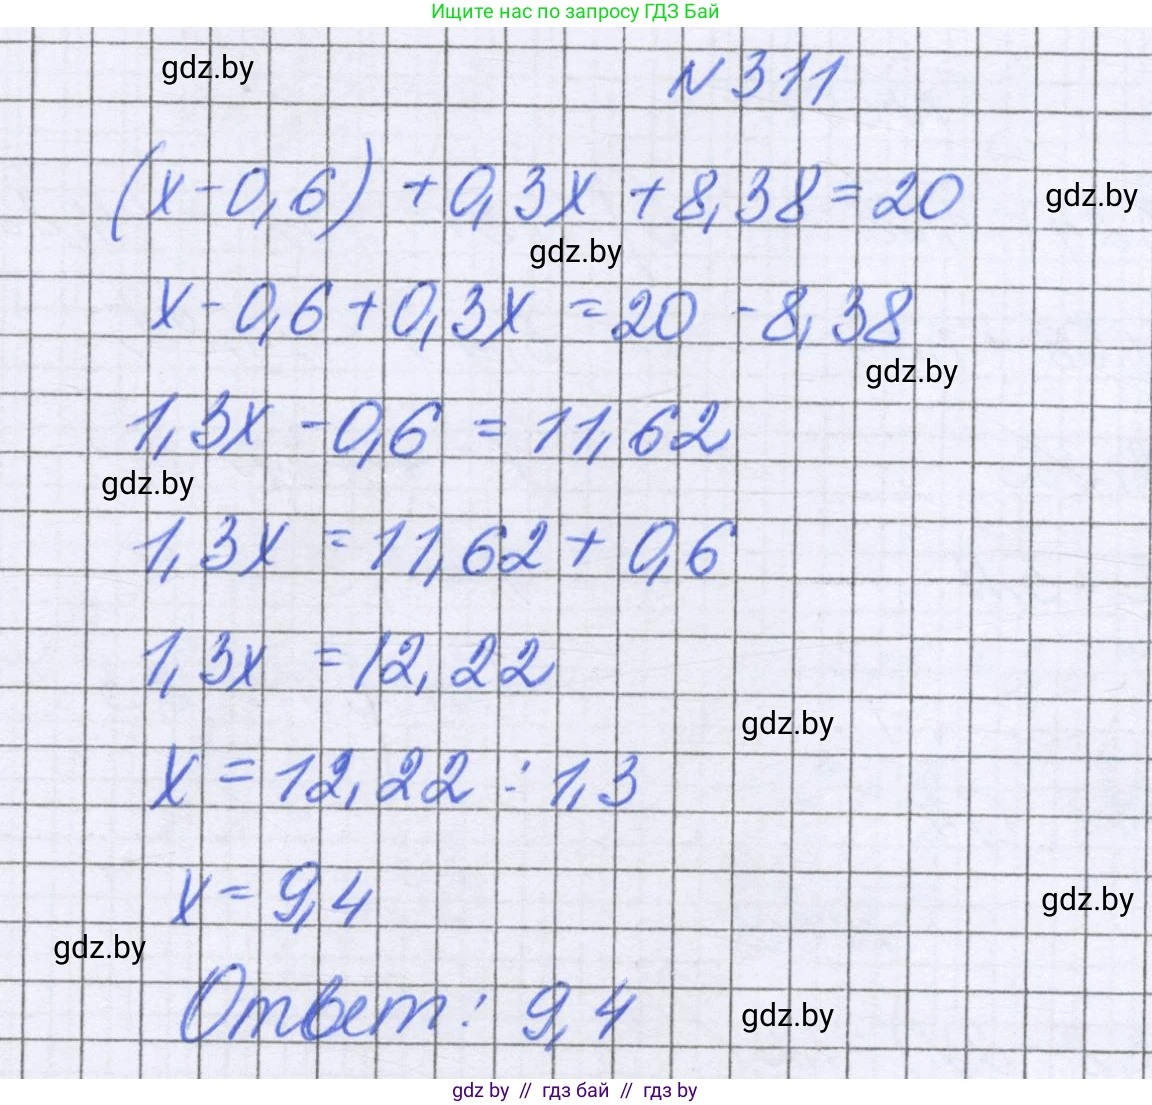 Ищите нас по запросу ГДЗ Бай
gdz.by
N 311
(x-0,6) +0,3x +8,38=20
gdz.by
gdz.by
x-0,6+0,3x =20 -8,38
gdz.by
1,3x -0,6 = 11,62
gdz.by
1,3x = 11,62+ 0,6
1,3x =12,22
gdz.by
x = 12,22 : 1,3
x= 9,4
gdz.by
gdz.by
Ответ: 9,4
gdz.by
gdz by // гдз бай // гдз by